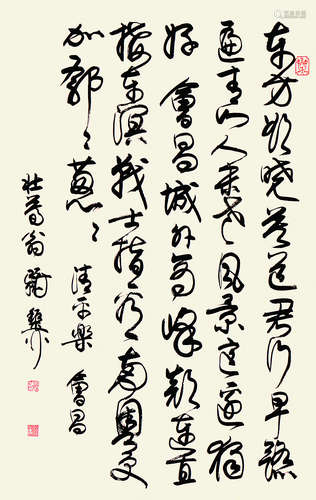 东方欲晓莫道君行早踏
遍青山人未老风景这边独
好 會昌城外高峰颠连直
接东溟战士指看南粤更
加郁々葱々
清平樂 會昌
壮暮翁稚柳